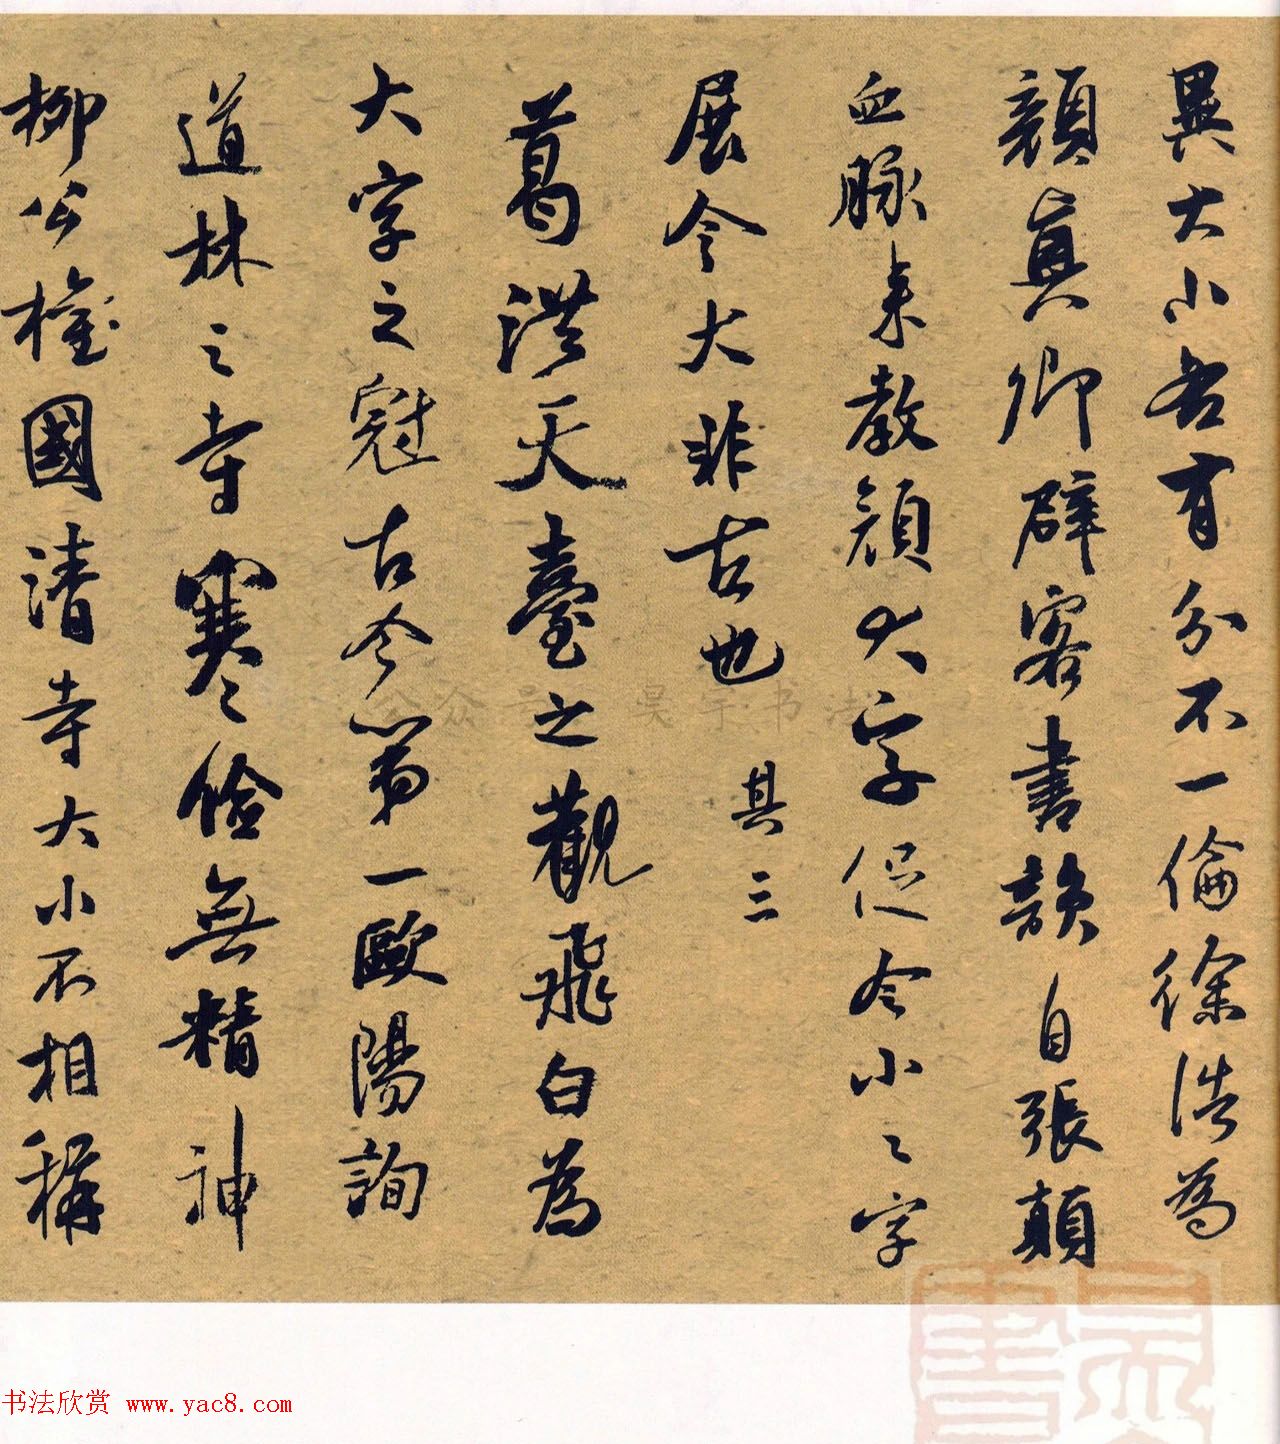 異大小各有分不一倫徐浩為
顏真卿辟客書韻自張顛
血脉来教顏大字促令小〻字
展令大非古也 其三
葛洪天臺之觀飛白為
大字之冠古今第一歐陽詢
道林之寺寒儉無精神
柳公權國清寺大小不相稱
公众号 昊宇书法
书法欣赏 www.yac8.com